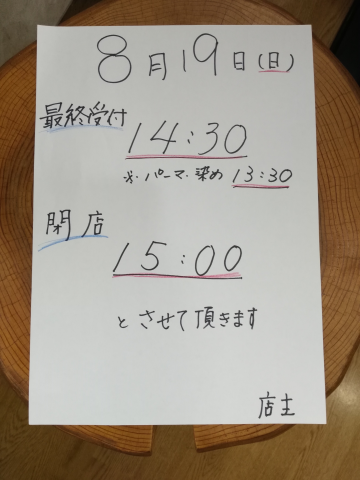 8月19日(日)
最終受付
14:30
※パーマ・染め 13:30
閉店
15:00
とさせて頂きます
店主